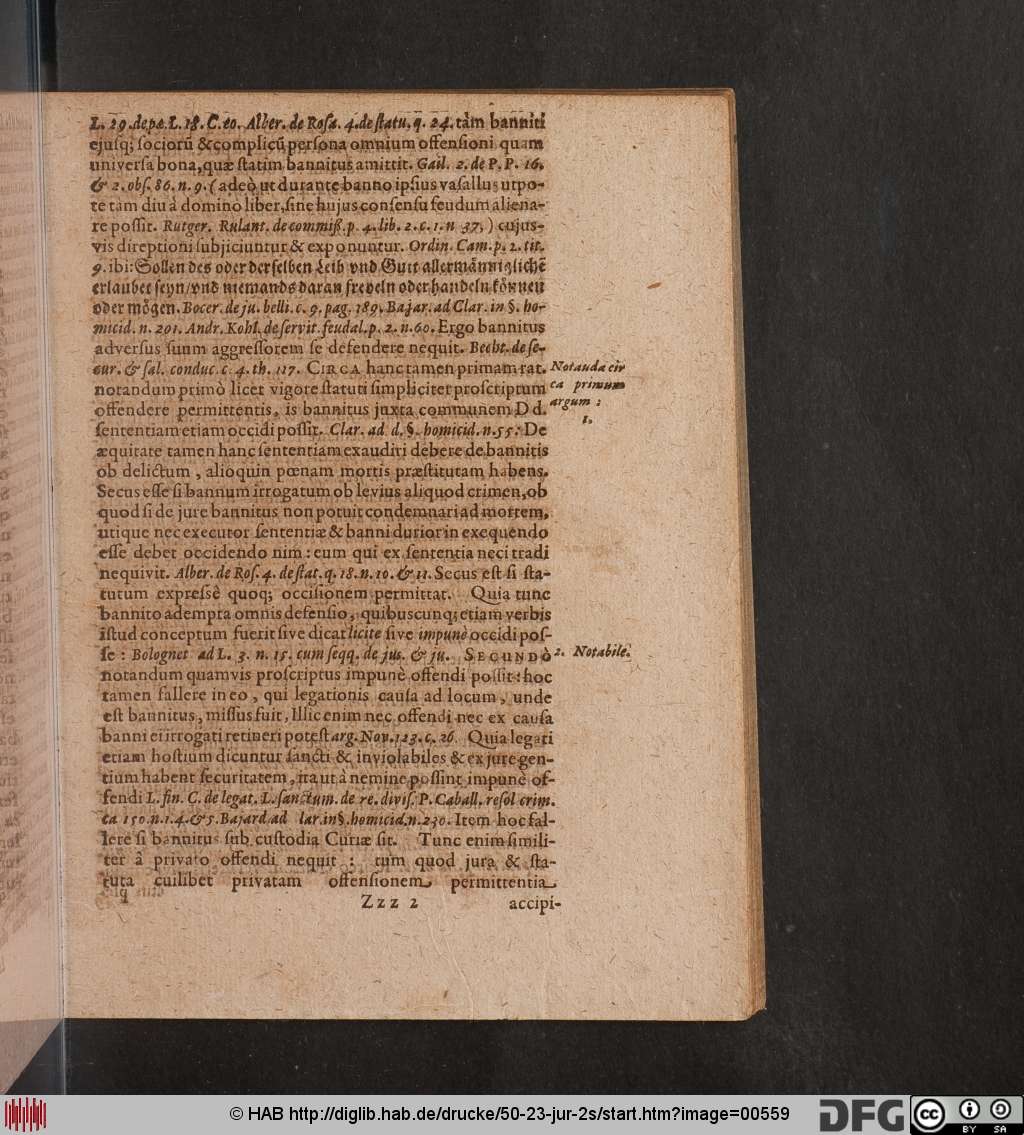 L. 29. de pæ. L. 18. C. eo. Alber. de Rosa. 4. de statu. q. 24. tàm banniti
ejusq; sociorũ & complicũ persona omnium offensioni quam
universa bona, quæ statim bannitus amittit. Gail. 2. de P. P. 16.
& 2. obs. 86. n. 9. (adeò ut durante banno ipsius vasallus utpo-
te tam diu à domino liber, sine hujus consensu feudum aliena-
re possit. Rutger. Rulant. de commiß. p. 4. lib. 2. c. 1. n 37.) cujus-
vis direptioni subjiciuntur & exponuntur. Ordin. Cam. p. 2. tit.
9. ibi: Sollen des oder derselben Leib vnd Gutt allermänniglichē
erlaubet seyn/vnd niemands daran freveln oder handeln können
oder mögen. Bocer. de ju. belli. c. 9. pag. 189. Bajar. ad Clar. in §. ho-
micid. n. 201. Andr. Kohl. de servit. feudal. p. 2. n. 60. Ergo bannitus
adversus suum aggressorem se defendere nequit. Becht. de se-
cur. & sal. conduc. c. 4. th. 117. CIRCA hanc tamen primam rat.
Notanda cir
ca primum
argum:
1.
notandum primò licet vigore statuti simpliciter proscriptum
offendere permittentis, is bannitus juxta communem Dd.
sententiam etiam occidi possit. Clar. ad d. §. homicid. n. 55. De
æquitate tamen hanc sententiam exauditi debere de bannitis
ob delictum, alioquin pœnam mortis præstitutam habens.
Secus esse si bannum irrogatum ob levius aliquod crimen, ob
quod si de jure bannitus non potuit condemnari ad mortem,
utique nec executor sententiæ & banni durior in exequendo
esse debet occidendo nim: eum qui ex sententia neci tradi
nequivit. Alber. de Ros. 4. de stat. q. 18. n. 10. & 11. Secus est si sta-
tutum expressè quoq; occisionem permittat. Quia tunc
bannito adempta omnis defensio, quibuscunq; etiam verbis
istud conceptum fuerit sive dicat licite sive impunè occidi pos-
se: Bolognet ad L. 3. n. 15. cum seqq. de jus. & ju. SECUNDÒ
2. Notabile.
notandum quamvis proscriptus impunè offendi possit: hoc
tamen fallere in eo, qui legationis causa ad locum, unde
est bannitus, missus fuit, Illic enim nec offendi nec ex causa
banni ei irrogati retineri potest arg. Nov. 123. c. 26. Quia legati
etiam hostium dicuntur sancti & inviolabiles & ex jure gen-
tium habent securitatem, ita ut à nemine possint impunè of-
fendi L. fin. C. de legat. L. sanctum. de re. divis. P. Caball. resol crim.
ca 150. n. 1. 4. & 5. Bajard ad lar. in §. homicid. n. 230. Item hoc fal-
lere si bannitus sub custodia Curiæ sit. Tunc enim simili-
ter â privato offendi nequit: tum quod jura & sta-
tuta cuilibet privatam offensionem permittentia
Zzz 2 accipi-
© HAB http://diglib.hab.de/drucke/50-23-jur-2s/start.htm?image=00559
DFG
cc BY SA